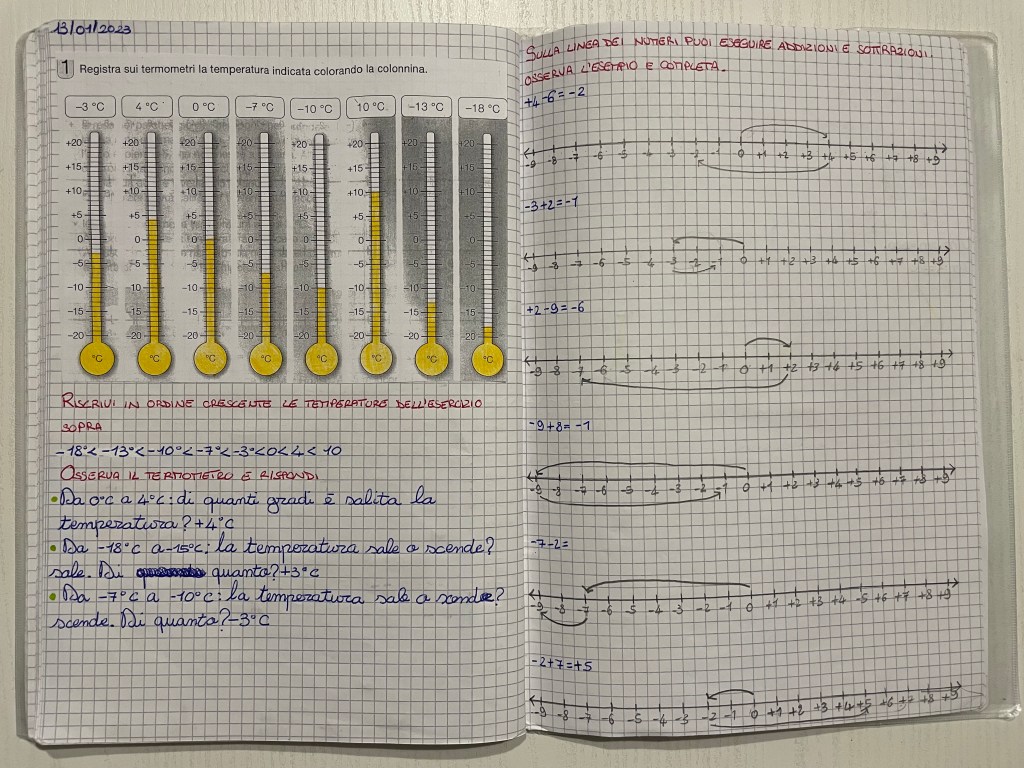 13/01/2023
1 Registra sui termometri la temperatura indicata colorando la colonnina.
-3 °C 4 °C 0 °C -7 °C -10 °C 10 °C -13 °C -18 °C
+20 +20 +20 +20 +20 +20 +20 +20
+15 +15 +15 +15 +15 +15 +15 +15
+10 +10 +10 +10 +10 +10 +10 +10
+5 +5 +5 +5 +5 +5 +5 +5
0 0 0 0 0 0 0 0
-5 -5 -5 -5 -5 -5 -5 -5
-10 -10 -10 -10 -10 -10 -10 -10
-15 -15 -15 -15 -15 -15 -15 -15
-20 -20 -20 -20 -20 -20 -20 -20
°C °C °C °C °C °C °C °C
RISCRIVI IN ORDINE CRESCENTE LE TEMPERATURE DELL'ESERCIZIO
SOPRA
-18°< -13°< -10°< -7°< -3°<0< 4 < 10
OSSERVA IL TERMOMETRO E RISPONDI
• Da 0°C a 4°C: di quanti gradi è salita la
temperatura? +4°C
• Da -18°C a -15°C: la temperatura sale o scende?
sale. Di quanto? +3°C
• Da -7°C a -10°C: la temperatura sale o scende?
scende. Di quanto? -3°C
SULLA LINEA DEI NUMERI PUOI ESEGUIRE ADDIZIONI E SOTTRAZIONI.
OSSERVA L'ESEMPIO E COMPLETA.
+4-6=-2
-9 -8 -7 -6 -5 -4 -3 -2 -1 0 +1 +2 +3 +4 +5 +6 +7 +8 +9
-3+2=-1
-9 -8 -7 -6 -5 -4 -3 -2 -1 0 +1 +2 +3 +4 +5 +6 +7 +8 +9
+2-9=-6
-9 -8 -7 -6 -5 -4 -3 -2 -1 0 +1 +2 +3 +4 +5 +6 +7 +8 +9
-9+8=-1
-9 -8 -7 -6 -5 -4 -3 -2 -1 0 +1 +2 +3 +4 +5 +6 +7 +8 +9
-7-2=
-9 -8 -7 -6 -5 -4 -3 -2 -1 0 +1 +2 +3 +4 -5 +6 +7 +8 +9
-2+7=+5
-9 -8 -7 -6 -5 -4 -3 -2 -1 0 +1 +2 +3 +4 +5 +6 +7 +8 +9